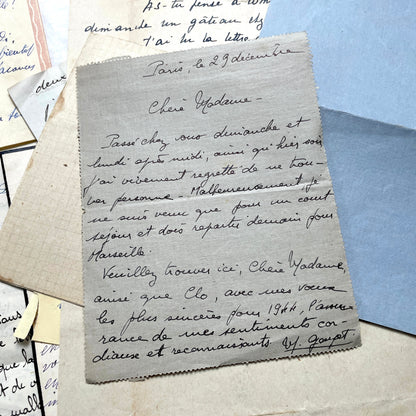 As-tu pensé à
demande un gâteau
J'ai lu la lettre
deux
Paris, le 29 décembre
Chère Madame -
Passé chez vous dimanche et
lundi après midi, ainsi qu'hier soir
j'ai vivement regretté de ne trou-
ver personne - Malheureusement, je
ne suis venu que pour un court
séjour et dois repartir demain pour
Marseille.
Veuillez trouver ici, Chère Madame,
ainsi que Clo, avec mes vœux
les plus sincères pour 1944, l'assu-
rance de mes sentiments cor-
diaux et reconnaissants.